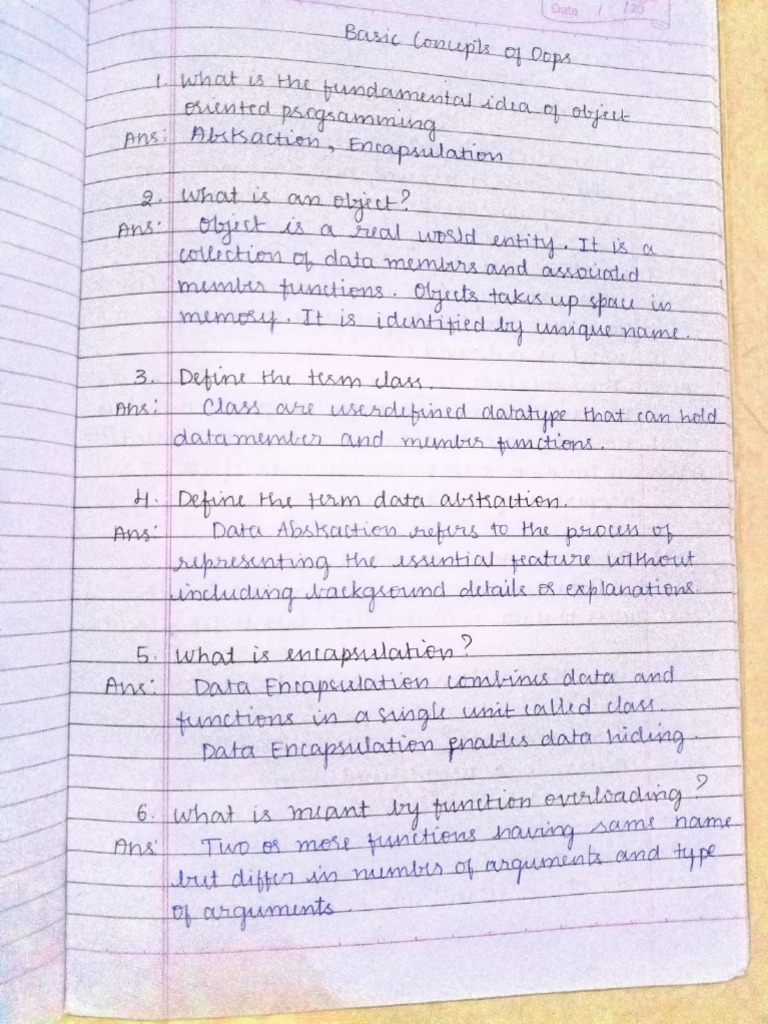 Date / /20
Basic Concepts of Oops
1. What is the fundamental idea of object
oriented programming
Ans: Abstraction, Encapsulation
2. What is an object?
Ans: Object is a real world entity. It is a
collection of data members and associated
member functions. Objects takes up space in
memory. It is identified by unique name.
3. Define the term class.
Ans: Class are userdefined datatype that can hold
data member and member functions.
4. Define the term data abstraction.
Ans: Data Abstraction refers to the process of
representing the essential feature without
including background details or explanations.
5. What is encapsulation?
Ans: Data Encapsulation combines data and
functions in a single unit called class.
Data Encapsulation enables data hiding.
6. What is meant by function overloading?
Ans Two or more functions having same name
but differ in number of arguments and type
of arguments.